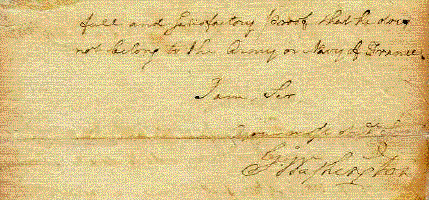 full and satisfactory proof that he does
not belong to the Army or Navy of France.
I am, Sir,
Your most
G:Washington